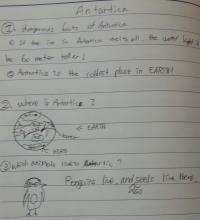 Antartica
① dangerous facts of Antartica
① If the ice in Antartica melts all, the water height
be 60 meter taller!
② Antartica is the coldest place in EARTH!
② where is Antartica?
← EARTH
← HERE
③ Which animals live in Antartic?
Penguins live, and seals live there